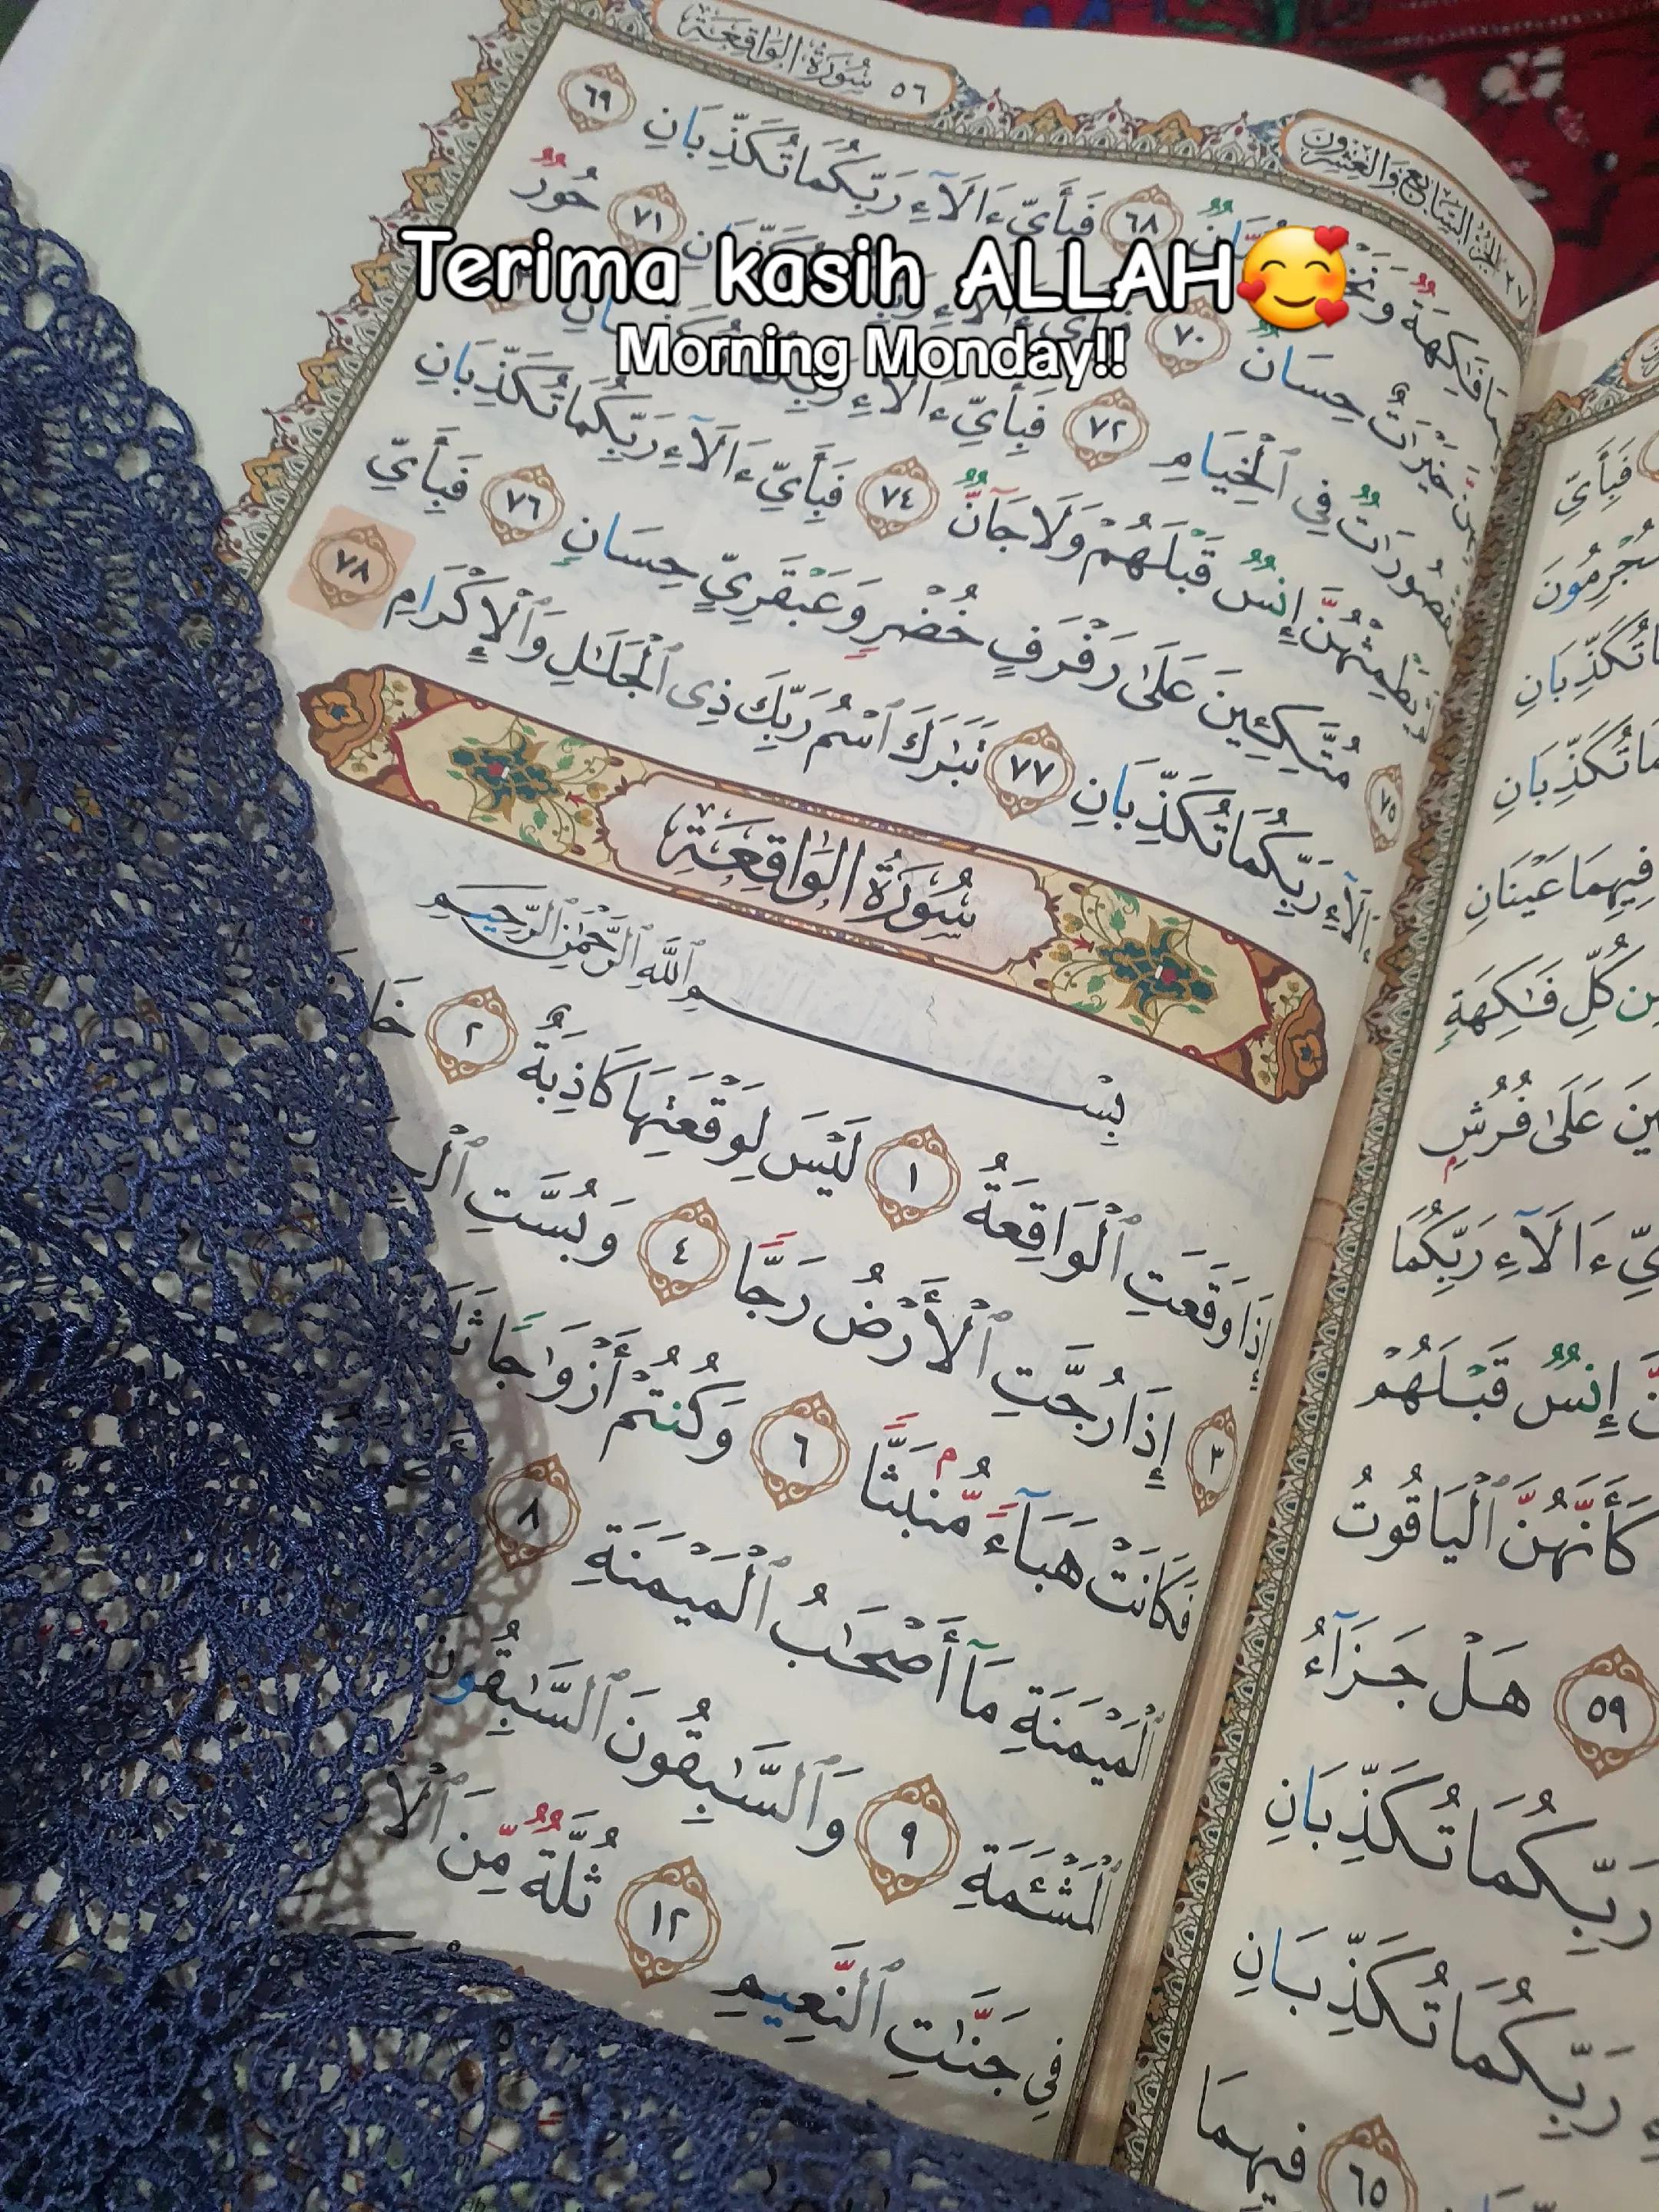 Terima kasih ALLAH🥰
Morning Monday!!
٥٦ سُورَةُ الوَاقِعَةِ
السَّابِعُ وَالْعِشْرُونَ ٢٧
فَٰكِهَةٞ وَنَخۡلٞ وَرُمَّانٞ ٦٨ فَبِأَيِّ ءَالَآءِ رَبِّكُمَا تُكَذِّبَانِ ٦٩
خَيۡرَٰتٌ حِسَانٞ ٧٠ ٧١ حُورٞ
فِي ٱلۡخِيَامِ ٧٢ فَبِأَيِّ ءَالَآءِ
إِنسٞ قَبۡلَهُمۡ وَلَا جَآنّٞ ٧٤ فَبِأَيِّ ءَالَآءِ رَبِّكُمَا تُكَذِّبَانِ
٧٥ مُتَّكِـِٔينَ عَلَىٰ رَفۡرَفٍ خُضۡرٖ وَعَبۡقَرِيٍّ حِسَانٖ ٧٦ فَبِأَيِّ
ءَالَآءِ رَبِّكُمَا تُكَذِّبَانِ ٧٧ تَبَٰرَكَ ٱسۡمُ رَبِّكَ ذِي ٱلۡجَلَٰلِ وَٱلۡإِكۡرَامِ ٧٨
سُورَةُ الوَاقِعَةِ
بِسۡمِ ٱللَّهِ ٱلرَّحۡمَٰنِ ٱلرَّحِيمِ
إِذَا وَقَعَتِ ٱلۡوَاقِعَةُ ١ لَيۡسَ لِوَقۡعَتِهَا كَاذِبَةٌ ٢
٣ إِذَا رُجَّتِ ٱلۡأَرۡضُ رَجّٗا ٤ وَبُسَّتِ
فَكَانَتۡ هَبَآءٗ مُّنۢبَثّٗا ٦ وَكُنتُمۡ أَزۡوَٰجٗا
ٱلۡمَيۡمَنَةِ مَآ أَصۡحَٰبُ ٱلۡمَيۡمَنَةِ ٨
ٱلۡمَشۡـَٔمَةِ ٩ وَٱلسَّٰبِقُونَ ٱلسَّٰبِقُونَ
فِي جَنَّٰتِ ٱلنَّعِيمِ ١٢ ثُلَّةٞ مِّنَ
فَبِأَيِّ
تُكَذِّبَانِ
تُكَذِّبَانِ
فِيهِمَا عَيۡنَانِ
كُلِّ فَٰكِهَةٖ
عَلَىٰ فُرُشِۭ
ءَالَآءِ رَبِّكُمَا
إِنسٞ قَبۡلَهُمۡ
كَأَنَّهُنَّ ٱلۡيَاقُوتُ
٥٩ هَلۡ جَزَآءُ
رَبِّكُمَا تُكَذِّبَانِ
رَبِّكُمَا تُكَذِّبَانِ
٦٥ فِيهِمَا